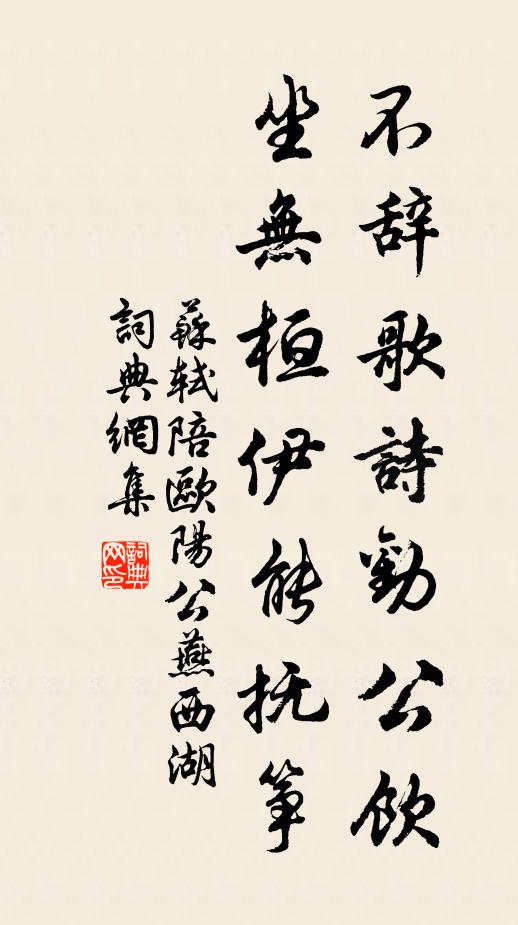 不辞歌詩勸公飲
坐無桓伊能抚筝
蘇軾陪歐陽公燕西湖
詞典網集
詞典网印